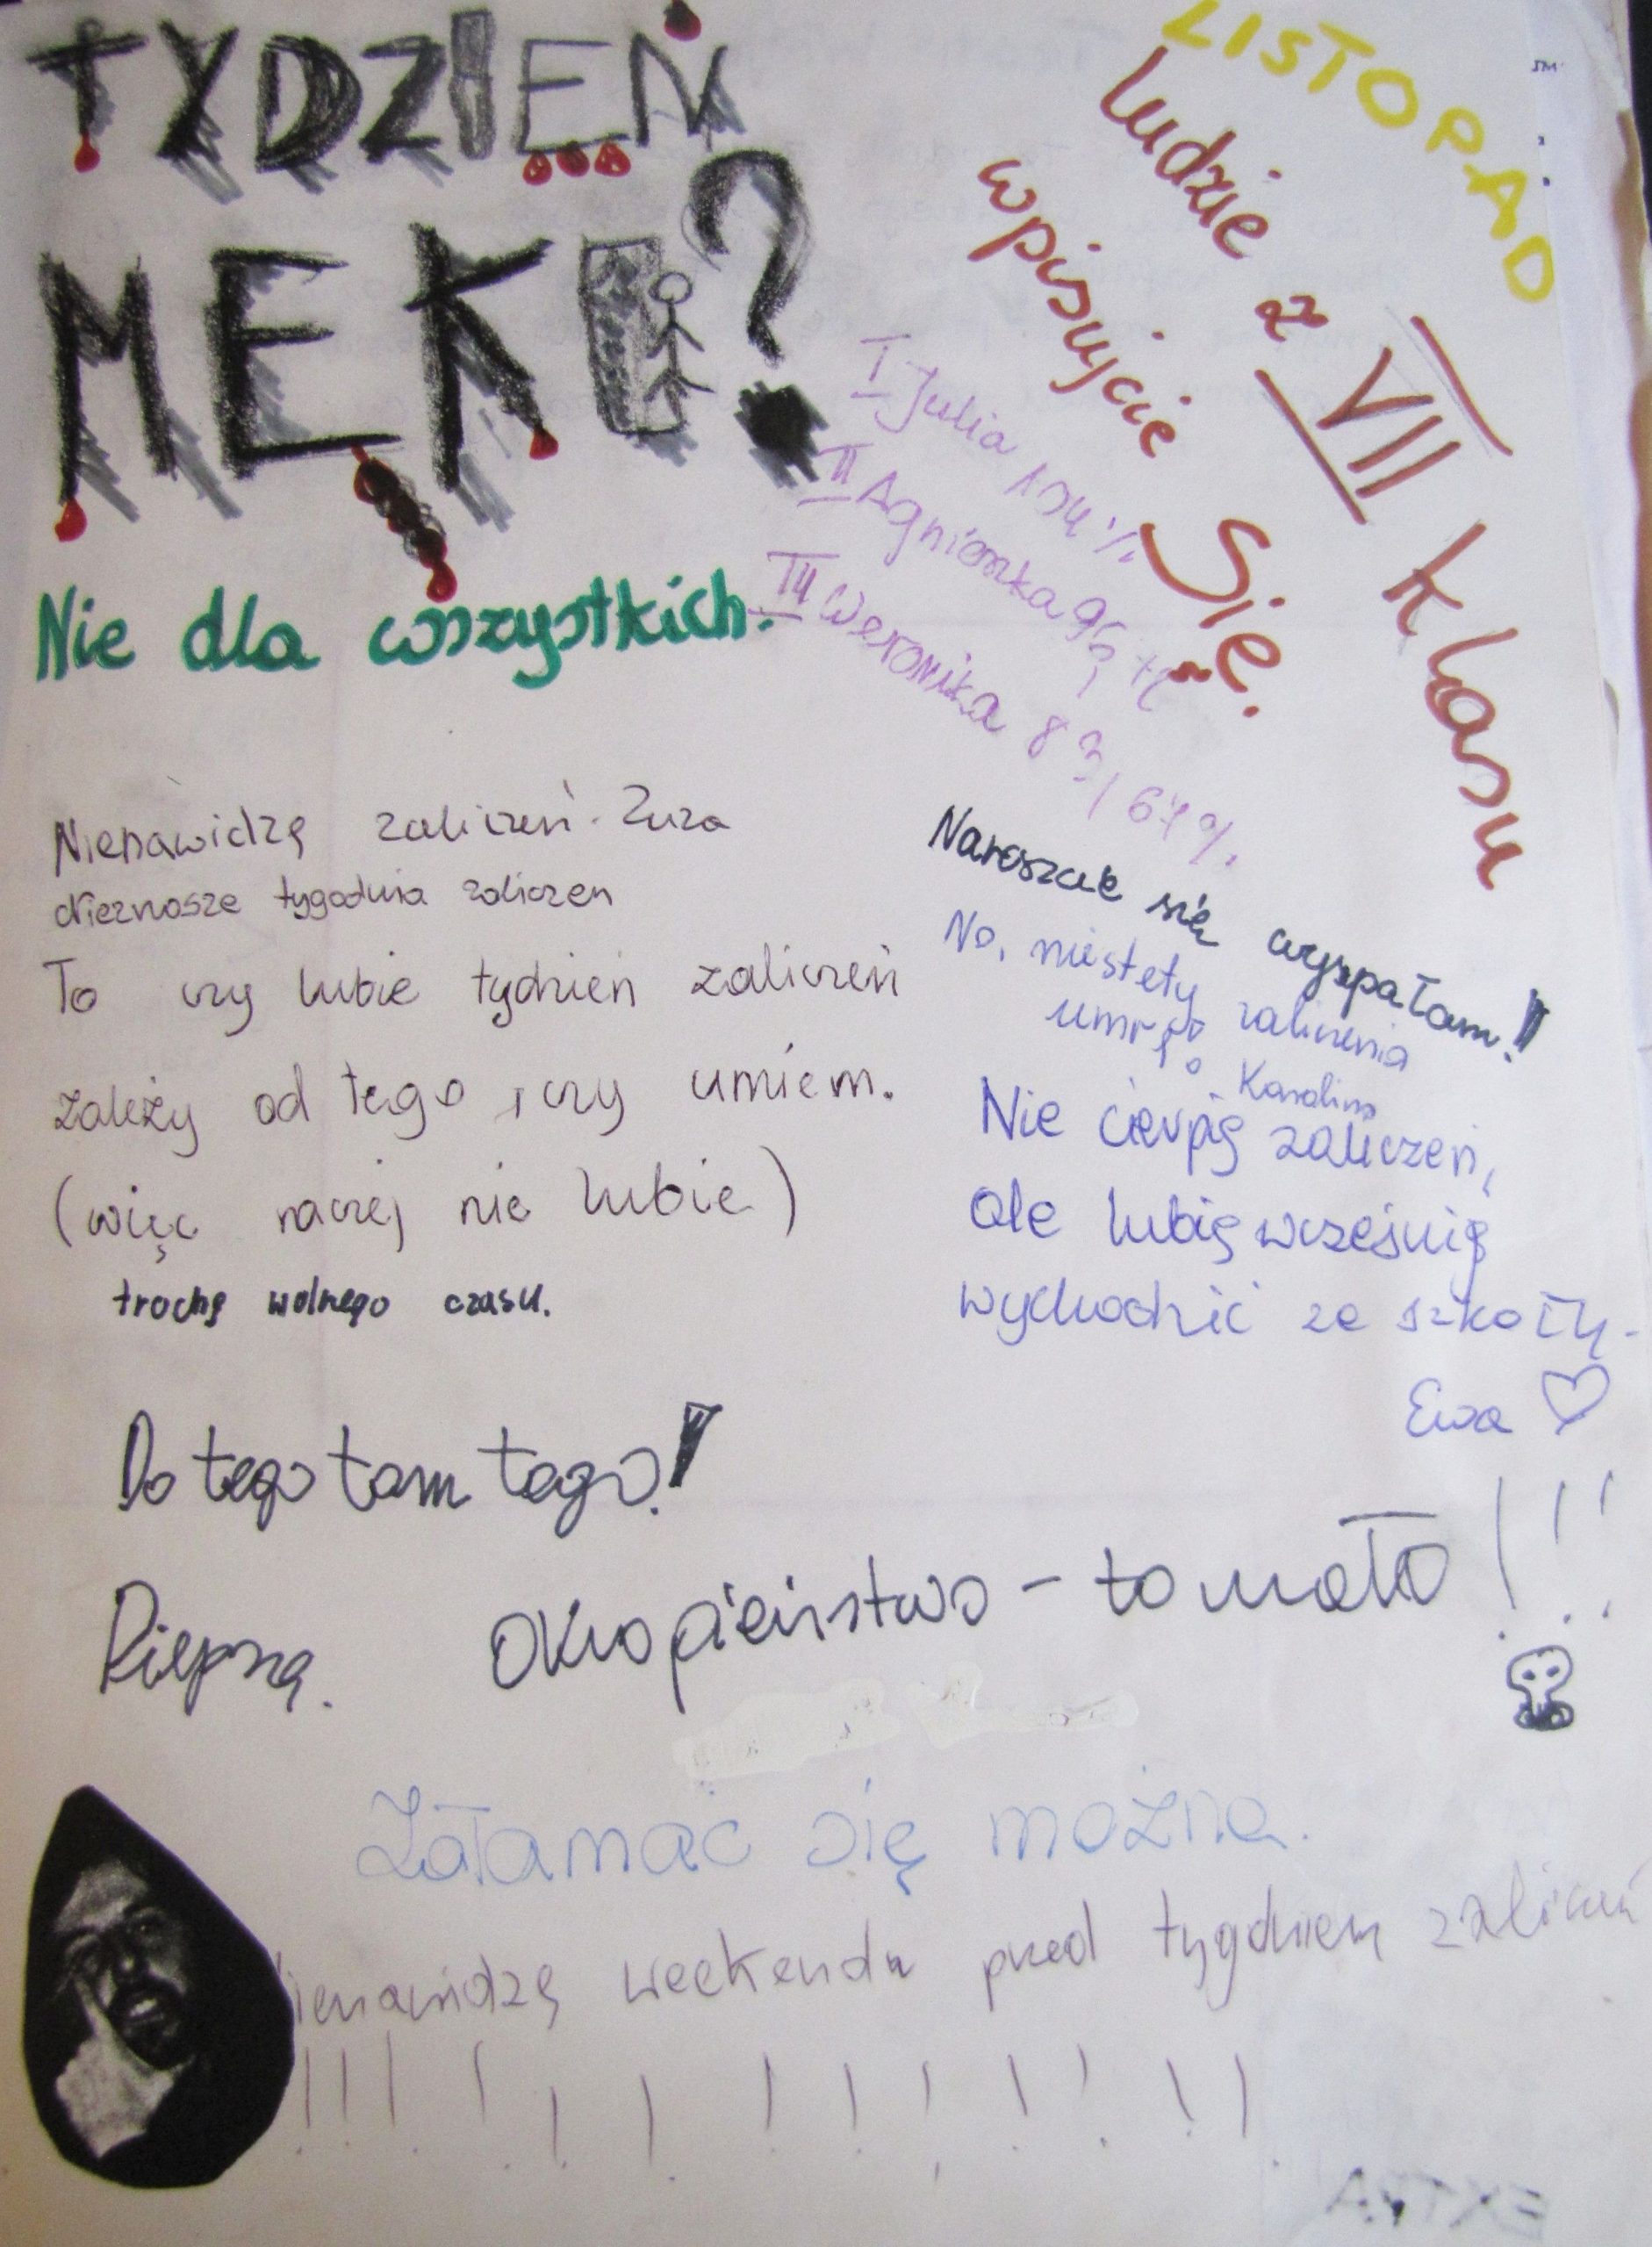 TYDZIEŃ
MEKI?
Nie dla wszystkich.
LISTOPAD
Ludzie z VII klasu
wpisujcie się.
I Julia 104%
II Agnieszka 96,
III Weronika 83,67%.
Nienawidzę zaliczeń. Zuza
Nieznosze tygodnia zaliczen
To czy lubie tydzień zaliczeń
zależy od tego, czy umiem.
(więc raczej nie lubie)
trochę wolnego czasu.
się wyspałam!
No, niestety zaliczenia
umrę. Karolina
Nie cierpię zaliczeń,
ale lubię wcześnię
wychodzić ze szkoły.
Ewa ♡
Do tego tam tego!
Okropieństwo - to mało!!!
Załamać się można.
ienawidzę weekendu przed tygodniem zaliczeń
!!!!!!!!!!!!!
EXTRA